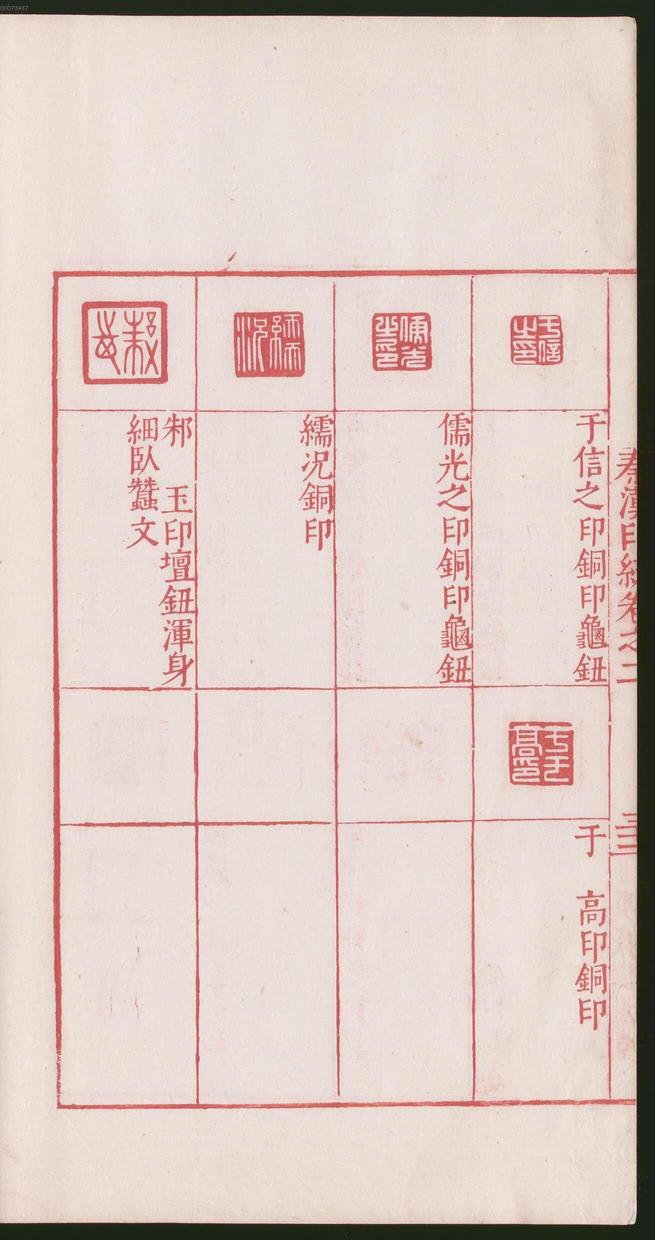 00073467
秦漢印統卷之二
三三
于信之印銅印龜鈕
于 高印銅印
儒光之印銅印龜鈕
繻况銅印
䣊 玉印壇鈕渾身
細臥蠶文